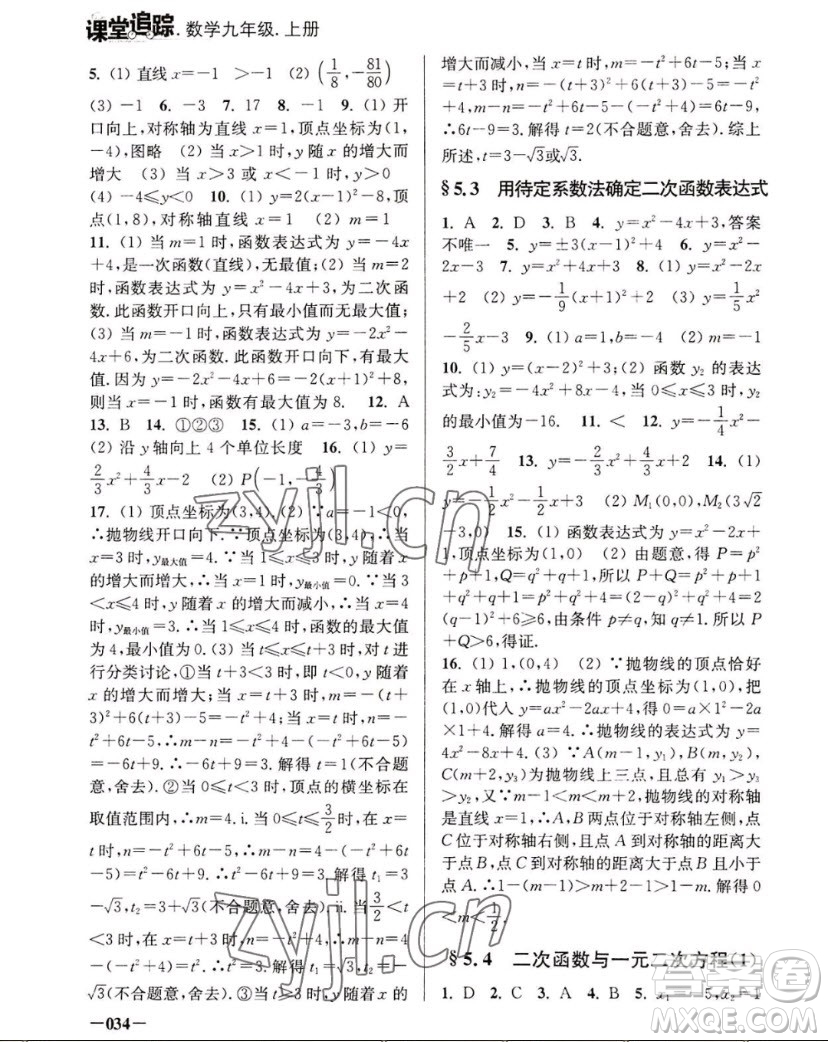 课堂追踪. 数学九年级. 上册
5. (1) 直线 x=-1 >-1 (2) (1/8,-81/80)
(3) -1 6. -3 7. 17 8. -1 9. (1) 开
口向上,对称轴为直线 x=1,顶点坐标为(1,
-4),图略 (2) 当 x>1 时,y 随 x 的增大而
增大 (3) 当 x>3 或 x<-1 时,y>0
(4) -4≤y<0 10. (1) y=2(x-1)²-8,顶
点(1,-8),对称轴直线 x=1 (2) m=1
11. (1) 当 m=1 时,函数表达式为 y=-4x
+4,是一次函数(直线),无最值;(2) 当 m=2
时,函数表达式为 y=x²-4x+3,为二次函
数. 此函数开口向上,只有最小值而无最大值;
(3) 当 m=-1 时,函数表达式为 y=-2x²-
4x+6,为二次函数. 此函数开口向下,有最大
值. 因为 y=-2x²-4x+6=-2(x+1)²+8,
则当 x=-1 时,函数有最大值为 8. 12. A
13. B 14. ①②③ 15. (1) a=-3,b=-6
(2) 沿 y 轴向上 4 个单位长度 16. (1) y=
2/3x²+4/3x-2 (2) P(-1,-4/3)
17. (1) 顶点坐标为(3,4).(2) ∵a=-1<0,
∴抛物线开口向下. ∵顶点坐标为(3,4),∴当
x=3 时,y最大值=4. ∵当 1≤x≤3 时,y 随着 x
的增大而增大,∴当 x=1 时,y最小值=0. ∵当 3
<x≤4 时,y 随着 x 的增大而减小,∴当 x=4
时,y最小值=3. ∴当 1≤x≤4 时,函数的最大值
为 4,最小值为 0.(3) 当 t≤x≤t+3 时,对 t 进
行分类讨论,①当 t+3<3 时,即 t<0,y 随着
x 的增大而增大,当 x=t+3 时,m=-(t+
3)²+6(t+3)-5=-t²+4,当 x=t 时,n=-
t²+6t-5,∴m-n=-t²+4-(-t²+6t-5)
=-6t+9,∴-6t+9=3. 解得 t=1(不合题
意,舍去).②当 0≤t<3 时,顶点的横坐标在
取值范围内,∴m=4. i. 当 0≤t≤3/2 时,在 x=
t 时,n=-t²+6t-5,∴m-n=4-(-t²+6t-5)
=t²-6t+9. ∴t²-6t+9=3. 解得 t₁=3
-√3,t₂=3+√3(不合题意,舍去). ii. 当 3/2<t
<3 时,在 x=t+3 时,n=-t²+4,∴m-n=
4-(-t²+4)=t². ∴t²=3. 解得 t₁=√3,t₂=-
√3(不合题意,舍去).③当 t≥3 时,y 随着 x 的
—034—
增大而减小,当 x=t 时,m=-t²+6t-5,当 x
=t+3 时,n=-(t+3)²+6(t+3)-5=-t²
+4,m-n=-t²+6t-5-(-t²+4)=6t-9,
∴6t-9=3. 解得 t=2(不合题意,舍去). 综上
所述,t=3-√3或√3.
§5.3 用待定系数法确定二次函数表达式
1. A 2. D 3. B 4. y=x²-4x+3,答案
不唯一 5. y=±3(x-1)² 6. y=x²-
2x-3 7. y=x²+4x+3 8. (1) y=x²-2x
+2 (2) y=-1/9(x+1)²+2 (3) y=-1/5x²
-2/5x-3 9. (1) a=1,b=-4 (2) m=-1
10. (1) y=(x-2)²+3;(2) 函数 y₂ 的表达
式为:y₂=-4x²+8x-4,当 0≤x≤3 时,y₂
的最小值为-16. 11. < 12. y=-1/4x²-
3/2x+7/4 13. y=-1/3x²+1/3x+2 14. (1)
y=-1/2x²-1/2x+3 (2) M₁(0,0),M₂(3√2
-3,0) 15. (1) 函数表达式为 y=x²-2x+
1,顶点坐标为(1,0) (2) 由题意,得 P=p²
+p+1,Q=q²+q+1,所以 P+Q=p²+p
+1+q²+q+1=(2-q)²+(2-q)+q²+q+2=
2(q-1)²+6≥6,由条件 p≠q,知 q≠1. 所以 P
+Q>6,得证.
16. (1) 1,(0,4) (2) ∵抛物线的顶点恰好
在 x 轴上,∴抛物线的顶点坐标为(1,0),把
(1,0)代入 y=ax²-2ax+4,得 0=a×1²-2a
×1+4. 解得 a=4. ∴抛物线的表达式为 y=
4x²-8x+4. (3) ∵A(m-1,y₁),B(m,y₂)
C(m+2,y₃)为抛物线上三点,且总有 y₁>y₃
>y₂,又∵a>0,∴-1<m<1. ∵抛物线的对称轴
是直线 x=1,∴A、B 两点在对称轴左侧,点
C 位于对称轴右侧,且点 A 到对称轴的距离大
于点 C 到对称轴的距离大于点 B 到对称轴的
距离. ∴1-(m-1)>m+2-1>1-m. 解得 0
<m<1/2.
§5.4 二次函数与一元二次方程(1)
1. D 2. C 3. A 4. B 5. x₁=-5,x₂=1
zyjl.cn
zyjl.cn
答案圈
MXQE.COM